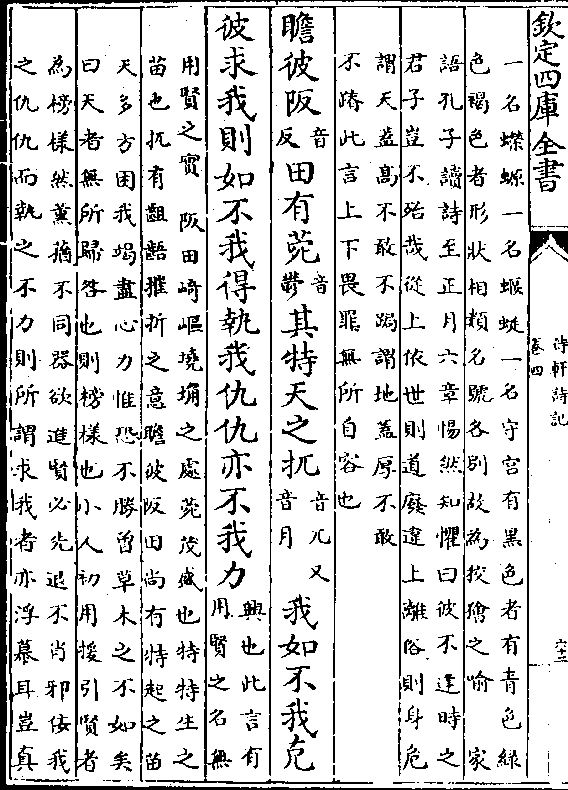 欽定四庫全書
詩記
卷四
一名蠑螈一名蝘蜓一名守宮有黑色者有青色綠
色褐色者形狀相類名號各別故為狡獪之喻　家
語孔子讀詩至正月六章惕然知懼曰彼不逢時之
君子豈不殆哉從上依世則道廢違上離俗則身危
謂天蓋高不敢不跼謂地蓋厚不敢
不蹐此言上下畏罪無所自容也
瞻彼阪音反田有菀音鬱其特天之扤音兀又音月我如不我克
彼求我則如不我得執我仇仇亦不我力興也此言有用賢之名無
用賢之實　阪田崎嶇墝埆之處菀茂盛也特特生之
苗也扤有齟齬摧折之意瞻彼阪田尚有特起之苗
天多方困我竭盡心力惟恐不勝曾草木之不如矣
曰天者無所歸咎也則榜樣也小人初用援引賢者
為榜樣然薰蕕不同器欲進賢必先退不肖邪佞我
之仇仇而執之不力則所謂求我者亦浮慕耳豈真